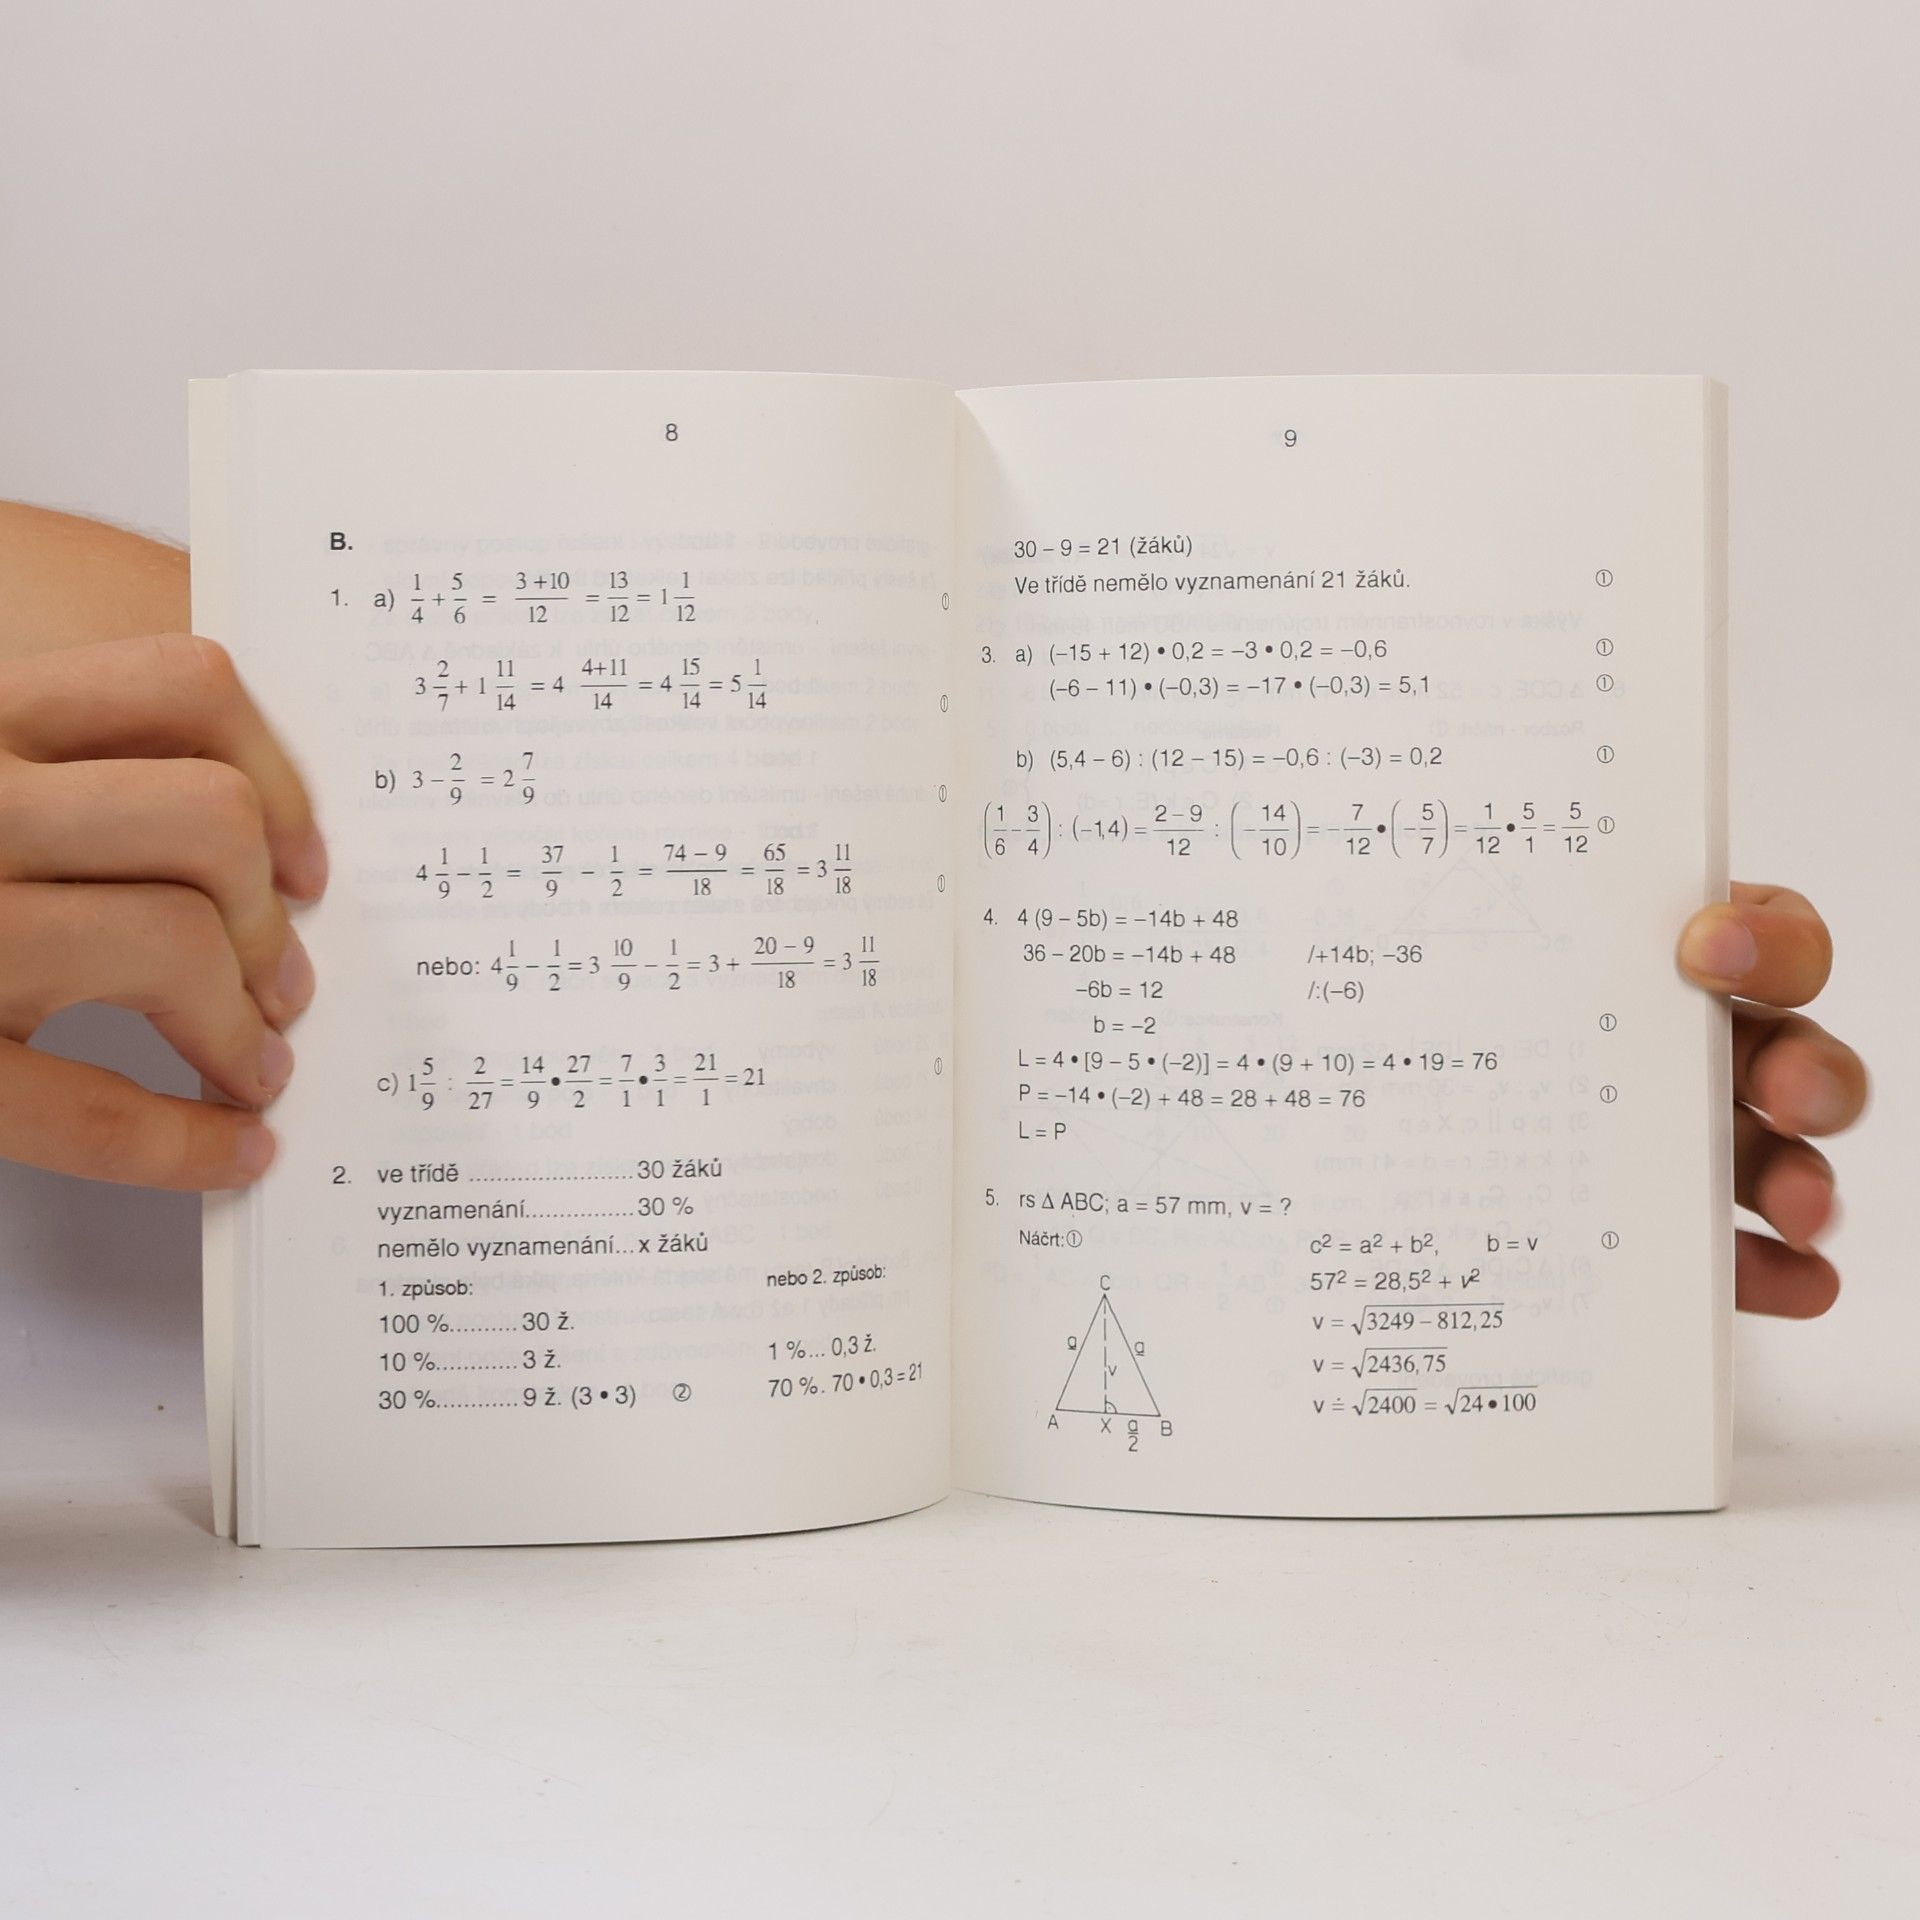 8
B.
1. a) 1/4 + 5/6 = 3+10/12 = 13/12 = 1 1/12 ①
3 2/7 + 1 11/14 = 4 4+11/14 = 4 15/14 = 5 1/14 ①
b) 3 – 2/9 = 2 7/9 ①
4 1/9 – 1/2 = 37/9 – 1/2 = 74 – 9/18 = 65/18 = 3 11/18 ①
nebo: 4 1/9 – 1/2 = 3 10/9 – 1/2 = 3 + 20 – 9/18 = 3 11/18
c) 1 5/9 : 2/27 = 14/9 • 27/2 = 7/1 • 3/1 = 21/1 = 21 ①
2. ve třídě ........................ 30 žáků
vyznamenání................ 30 %
nemělo vyznamenání... x žáků
1. způsob:
100 %.......... 30 ž.
10 %............ 3 ž.
30 %............ 9 ž. (3 • 3) ②
nebo 2. způsob:
1 %... 0,3 ž.
70 %. 70 • 0,3 = 21
9
30 – 9 = 21 (žáků)
Ve třídě nemělo vyznamenání 21 žáků. ①
3. a) (–15 + 12) • 0,2 = –3 • 0,2 = –0,6 ①
(–6 – 11) • (–0,3) = –17 • (–0,3) = 5,1 ①
b) (5,4 – 6) : (12 – 15) = –0,6 : (–3) = 0,2 ①
(1/6 – 3/4) : (–1,4) = 2 – 9/12 : (– 14/10) = – 7/12 • (– 5/7) = 1/12 • 5/1 = 5/12 ①
4. 4 (9 – 5b) = –14b + 48
36 – 20b = –14b + 48 /+14b; –36
–6b = 12 /:(–6)
b = –2 ①
L = 4 • [9 – 5 • (–2)] = 4 • (9 + 10) = 4 • 19 = 76
P = –14 • (–2) + 48 = 28 + 48 = 76 ①
L = P
5. rs Δ ABC; a = 57 mm, v = ?
Náčrt:①
C
a a
v
A X a/2 B
c² = a² + b², b = v ①
57² = 28,5² + v²
v = √3249 – 812,25
v = √2436,75
v ≐ √2400 = √24 • 100